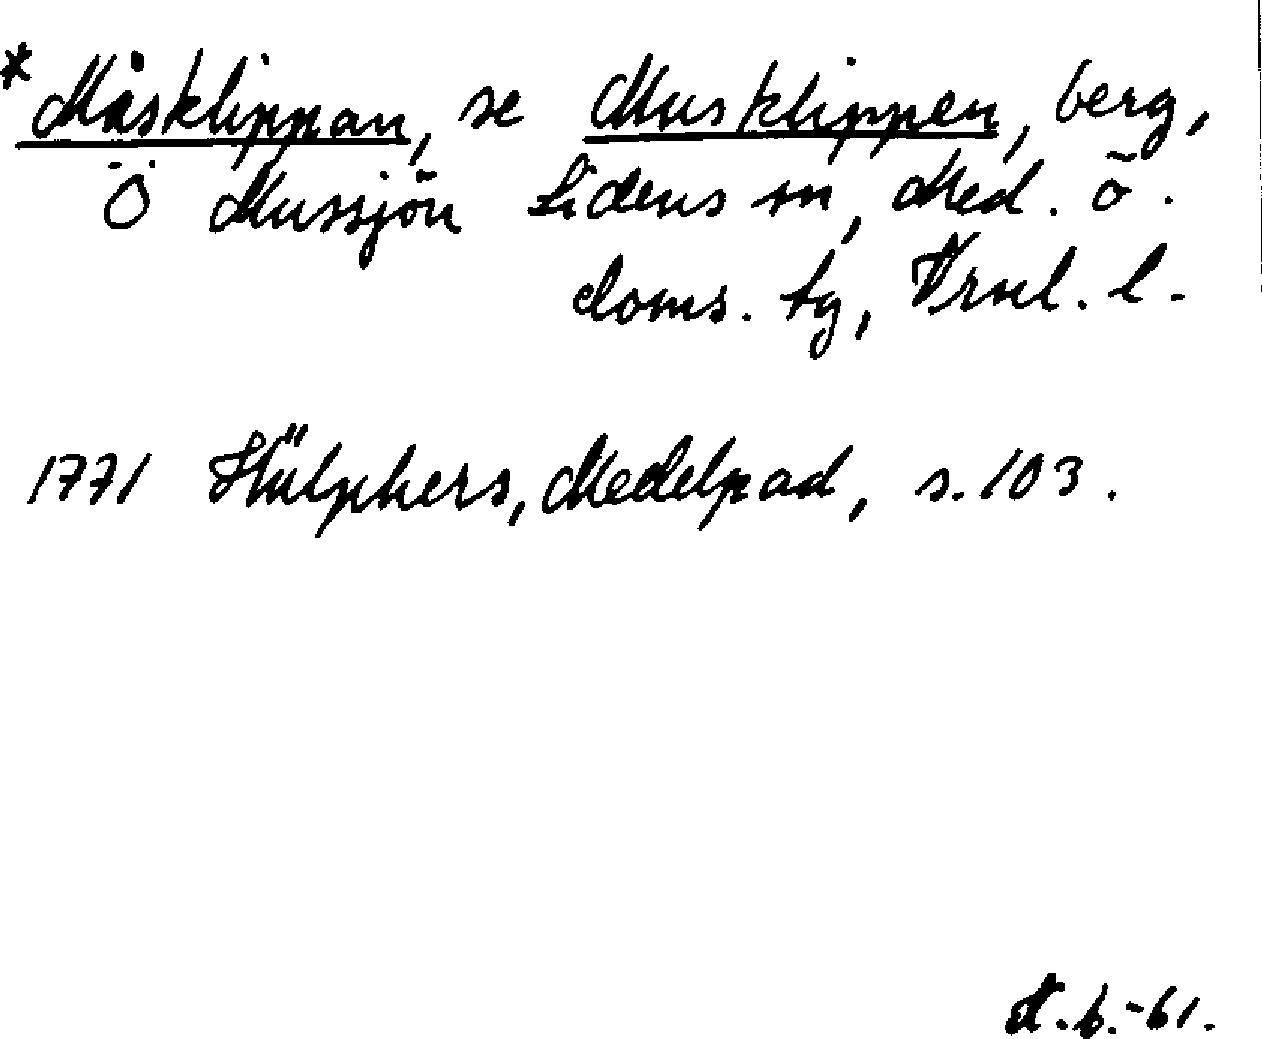 *Måsklippan, se Musklippen, berg,
Ö Mussjön Lidens sn, Med. ö.
doms. tg, Vrnl. l.
1771 Hülphers, Medelpad, s. 103.
-61.